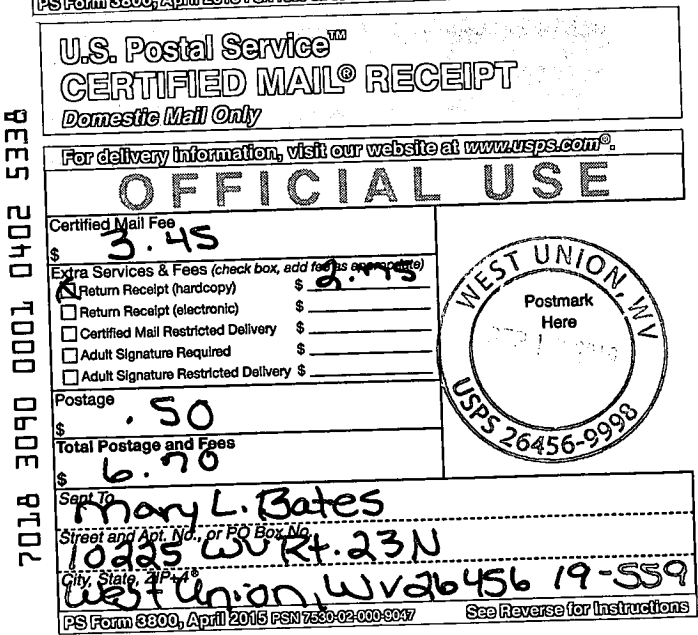 PS Form 3800, April 2015
U.S. Postal Service™
CERTIFIED MAIL® RECEIPT
Domestic Mail Only
For delivery information, visit our website at www.usps.com®.
OFFICIAL USE
Certified Mail Fee
$ 3.45
Extra Services & Fees (check box, add fee as appropriate)
Return Receipt (hardcopy) $ 2.75
Return Receipt (electronic) $
Certified Mail Restricted Delivery $
Adult Signature Required $
Adult Signature Restricted Delivery $
Postage
$ .50
Total Postage and Fees
$ 6.70
WEST UNION, WV
Postmark
Here
USPS 26456-9998
Sent To
Mary L. Bates
Street and Apt. No., or PO Box No.
10225 WV Rt. 23N
City, State, ZIP+4®
West Union, WV 26456 19-559
PS Form 3800, April 2015 PSN 7530-02-000-9047 See Reverse for Instructions
7018 3090 0001 0402 5338